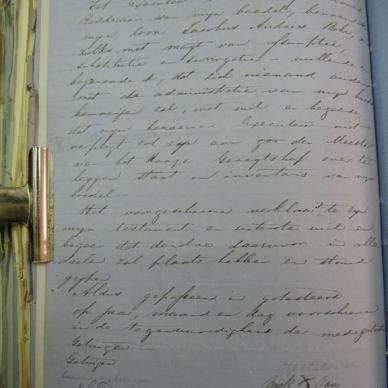 Tot Executeur
Redderaar van myn boedel, benoem
myn zoon Jacobus Andries
zulks met magt van assumptie,
substitutie en surrogatie – willende e
begeerende ik, dat zich niemand anders
met de administratie van myn boedel
bemoeije zal, met wil en begeerte
dat myn benoemde Executeur niet
verpligt zal zyn aan den Meester
van het Hooge Geregtshof over te
leggen staat en inventaris van myn
boedel –
Het voorgeschreven verklaar te zyn
myn testament en uiterste wil en
begeer dat derzelve daarvoor in alle
deele zal plaats hebben en stand
grypen
Aldus gepasseerd en getesteerd
op jaar, maand en dag voorschreven
in de tegenwoordigheid der medegetek
Getuigen –
Getuigen
merk X van